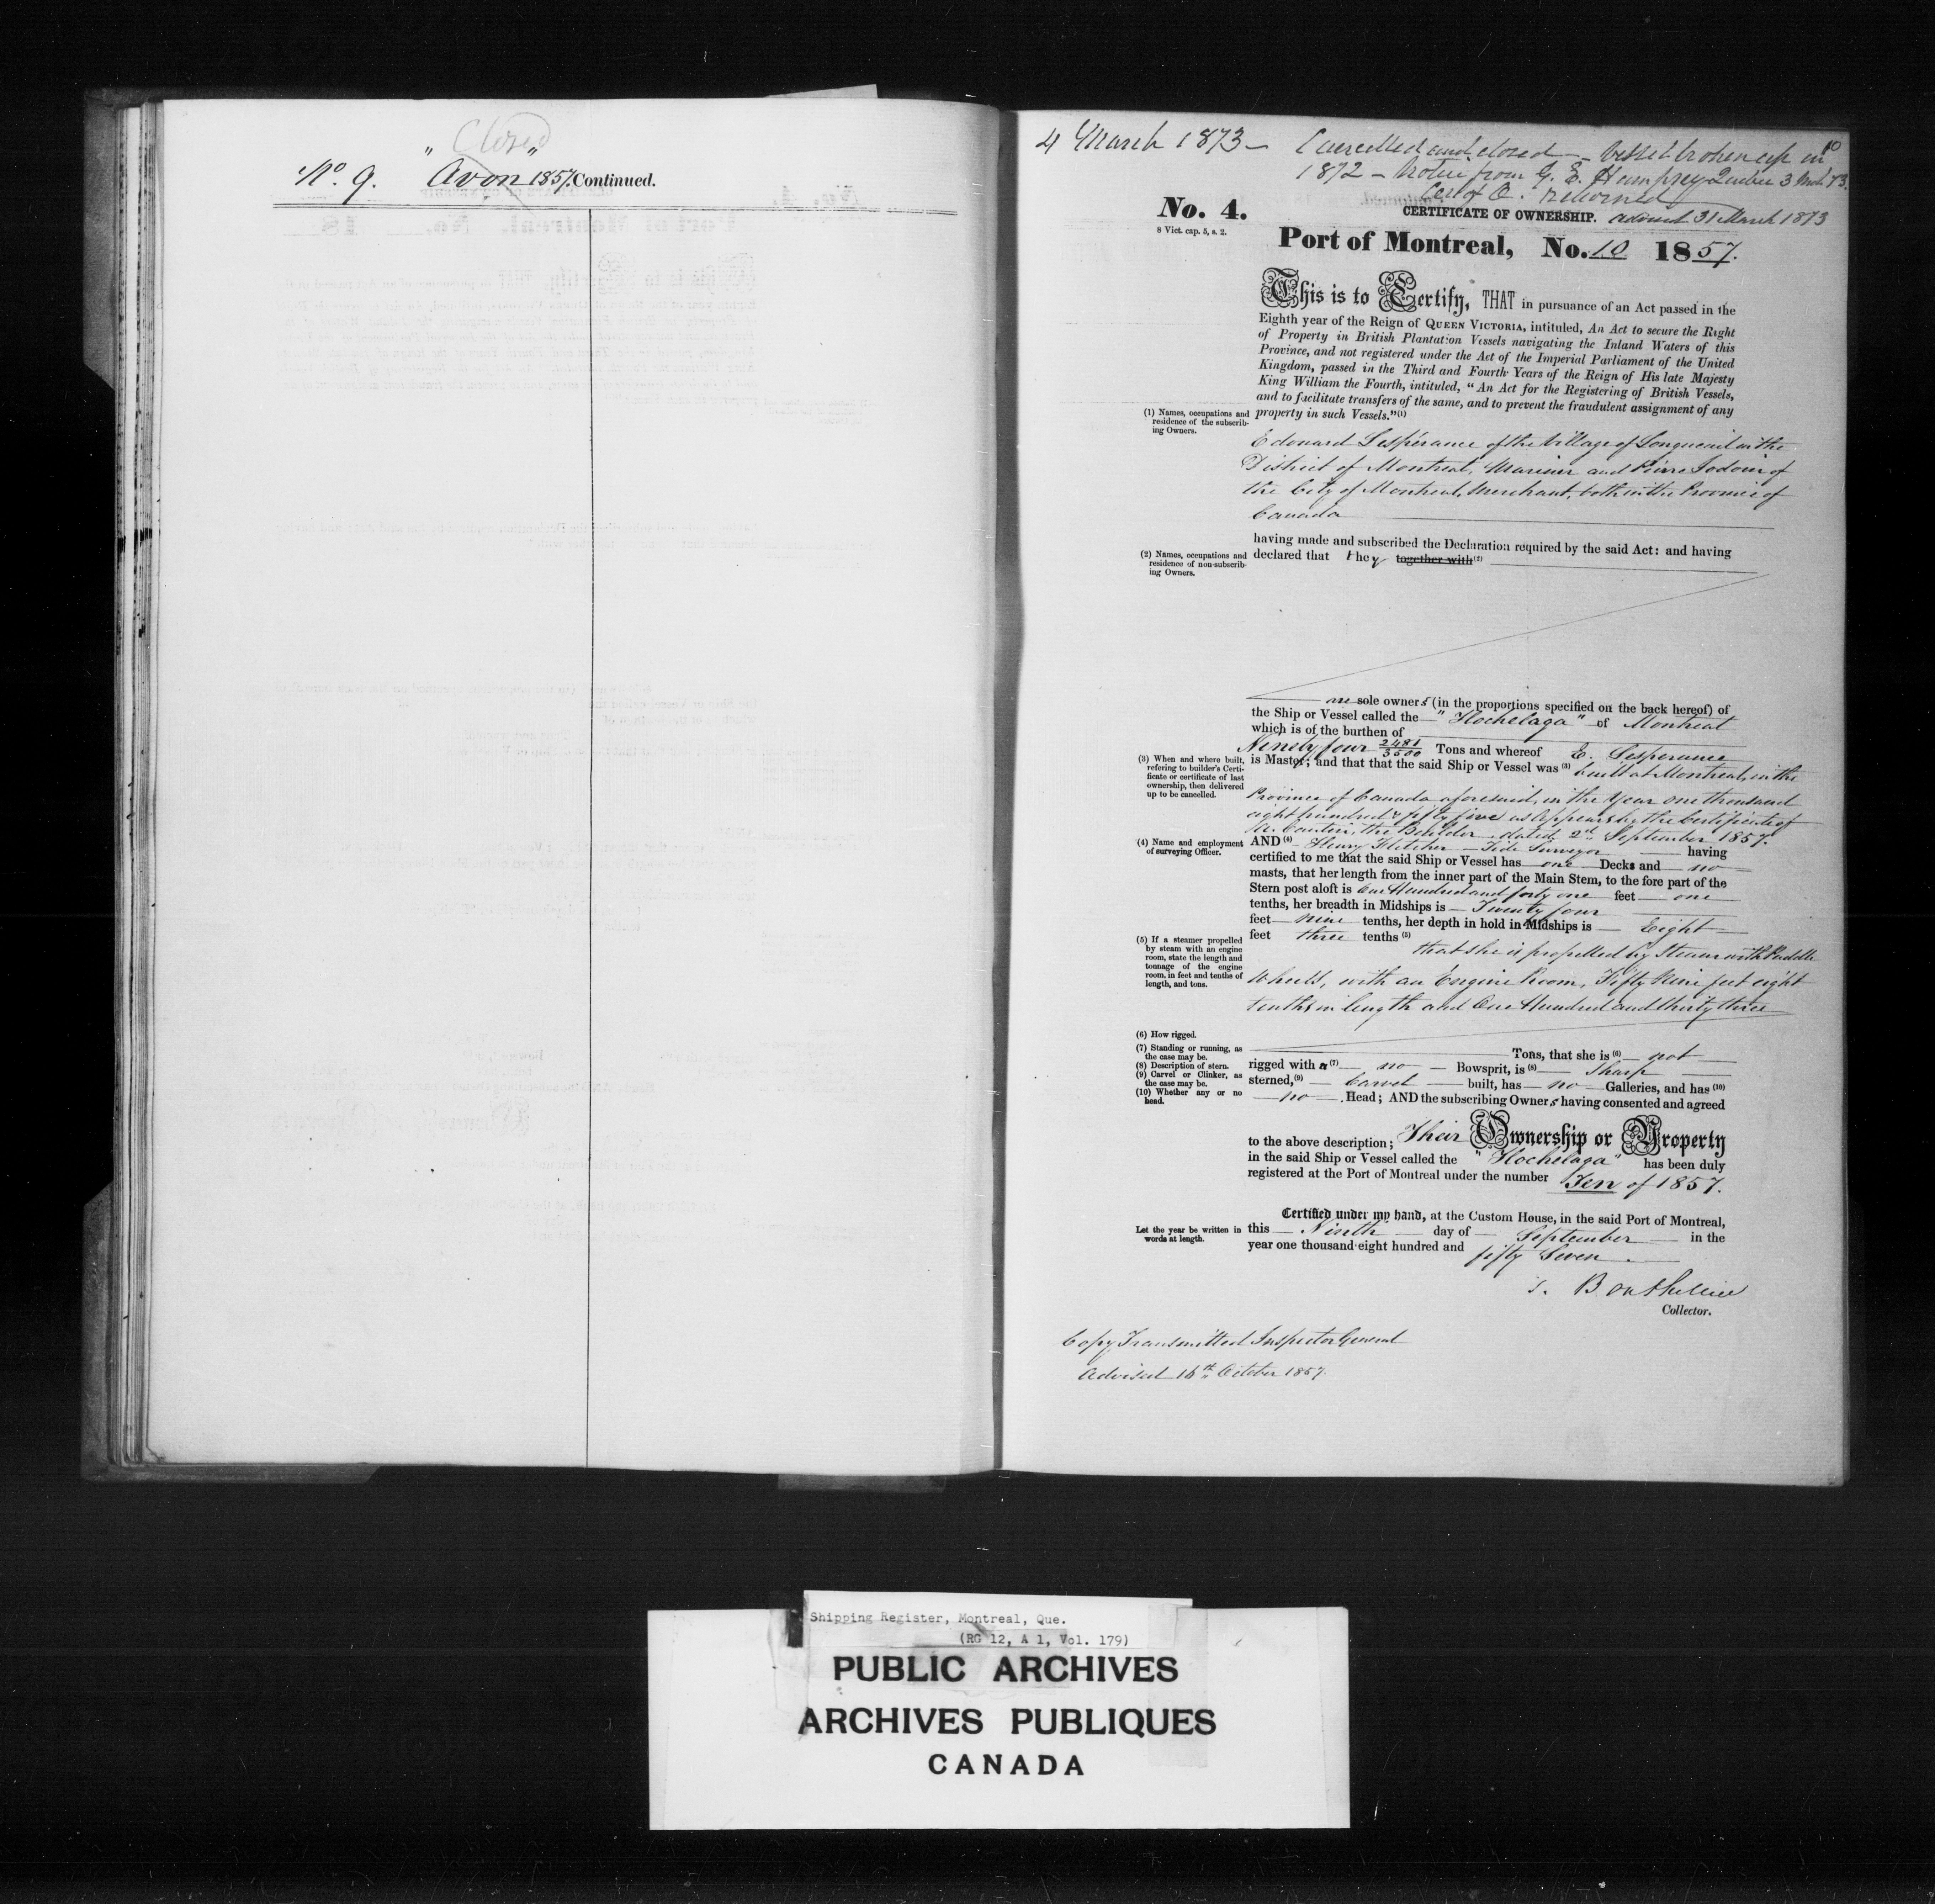 Closed
No. 9. "Avon" 1857. Continued.
4 March 1873 — Cancelled and closed — Vessel broken up in
10
1872 — Notice from G. E. Humphrey Quebec 3 Mch 73.
Cer of O. returned
No. 4.
8 Vict. cap. 5, s. 2.
CERTIFICATE OF OWNERSHIP. advised 31 March 1873
Port of Montreal, No. 10 1857.
This is to Certify, THAT in pursuance of an Act passed in the
Eighth year of the Reign of QUEEN VICTORIA, intituled, An Act to secure the Right
of Property in British Plantation Vessels navigating the Inland Waters of this
Province, and not registered under the Act of the Imperial Parliament of the United
Kingdom, passed in the Third and Fourth Years of the Reign of His late Majesty
King William the Fourth, intituled, "An Act for the Registering of British Vessels,
and to facilitate transfers of the same, and to prevent the fraudulent assignment of any
property in such Vessels."(1)
(1) Names, occupations and
residence of the subscrib-
ing Owners.
Edouard Lespérance of the Village of Longueuil in the
District of Montreal, Mariner and Pierre Jodoin of
the City of Montreal, Merchant, both in the Province of
Canada
having made and subscribed the Declaration required by the said Act: and having
(2) Names, occupations and
residence of non-subscrib-
ing Owners.
declared that they together with (2)
are sole owners (in the proportions specified on the back hereof) of
the Ship or Vessel called the "Hochelaga" of Montreal
which is of the burthen of
Ninety four 2481/3500 Tons and whereof E. Lesperance
(3) When and where built,
refering to builder's Certi-
ficate or certificate of last
ownership, then delivered
up to be cancelled.
is Master; and that that the said Ship or Vessel was (3) built at Montreal, in the
Province of Canada aforesaid, in the Year one thousand
eight hundred & fifty five as appears by the Certificate of
A. Cantin, the Builder, dated 2nd September 1857.
(4) Name and employment
of surveying Officer.
AND (4) Henry Fletcher — Tide Surveyor having
certified to me that the said Ship or Vessel has one Decks and no
masts, that her length from the inner part of the Main Stem, to the fore part of the
Stern post aloft is One Hundred and forty one feet one
tenths, her breadth in Midships is Twenty four
feet nine tenths, her depth in hold in Midships is Eight
feet three tenths (5) that she is propelled by Steam with Paddle
(5) If a steamer propelled
by steam with an engine
room, state the length and
tonnage of the engine
room, in feet and tenths of
length, and tons.
Wheels, with an Engine Room, Fifty Nine feet eight
tenths in length and One Hundred and thirty three
(6) How rigged.
(7) Standing or running, as
the case may be.
(8) Description of stern.
(9) Carvel or Clinker, as
the case may be.
(10) Whether any or no
head.
Tons, that she is (6) not
rigged with a (7) no Bowsprit, is (8) Sharp
sterned, (9) Carvel built, has no Galleries, and has (10)
no Head; AND the subscribing Owners having consented and agreed
to the above description; Their Ownership or Property
in the said Ship or Vessel called the "Hochelaga" has been duly
registered at the Port of Montreal under the number Ten of 1857.
Certified under my hand, at the Custom House, in the said Port of Montreal,
Let the year be written in
words at length.
this Ninth day of September in the
year one thousand eight hundred and fifty Seven.
Bouthillier
Collector.
Copy Transmitted Inspector General
Advised 16th October 1857.
Shipping Register, Montreal, Que.
(RG 12, A 1, Vol. 179)
PUBLIC ARCHIVES
ARCHIVES PUBLIQUES
CANADA